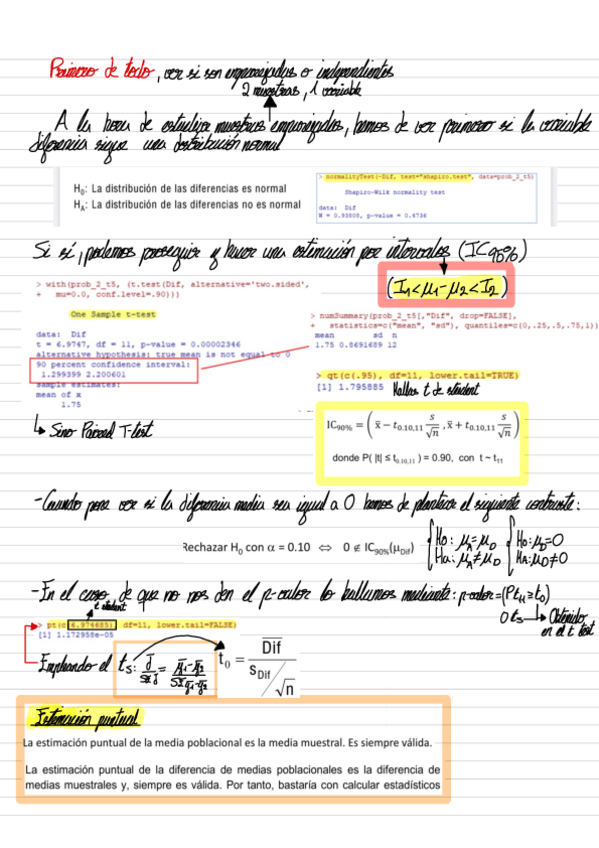 Primero de todo, ver si son emparejadas o independientes
2 muestras, 1 variable
A la hora de estudiar muestras emparejadas, hemos de ver primero si la variable
diferencia sigue una distribución normal
H0: La distribución de las diferencias es normal
HA: La distribución de las diferencias no es normal
> normalityTest(~Dif, test="shapiro.test", data=prob_2_t5)
Shapiro-Wilk normality test
data: Dif
W = 0.93800, p-value = 0.4736
Si sí, podemos proseguir y hacer una estimación por intervalos (IC90%)
(I1<μ1-μ2<I2)
> with(prob_2_t5, (t.test(Dif, alternative='two.sided',
+ mu=0.0, conf.level=.90)))
One Sample t-test
data: Dif
t = 6.9747, df = 11, p-value = 0.00002346
alternative hypothesis: true mean is not equal to 0
90 percent confidence interval:
1.299399 2.200601
sample estimates:
mean of x
1.75
> numSummary(prob_2_t5[,"Dif", drop=FALSE],
+ statistics=c("mean", "sd"), quantiles=c(0,.25,.5,.75,1))
mean sd n
1.75 0.8691689 12
> qt(c(.95), df=11, lower.tail=TRUE)
[1] 1.795885
Hallas t de student
↳ Sino Paired T-test
IC90% = ( x̄ − t0.10,11 s/√n , x̄ + t0.10,11 s/√n )
donde P( |t| ≤ t0.10,11 ) = 0.90, con t ~ t11
-Cuando para ver si la diferencia media sea igual a 0 hemos de plantear el siguiente contraste:
Rechazar H0 con α = 0.10 ⇔ 0 ∉ IC90%(μDif)
{H0: μA=μD {H0: μD=0
Ha: μA≠μD HA: μD≠0
-En el caso de que no nos den el p-valor lo hallamos mediante: p-valor=(Pt11≥t0)
t student
0 ts → Obtenido
en el t test
> pt(c(6.974685), df=11, lower.tail=FALSE)
[1] 1.172958e-05
Empleando el ts:
t0 = Dif / (sDif/√n)
Estimación puntual
La estimación puntual de la media poblacional es la media muestral. Es siempre válida.
La estimación puntual de la diferencia de medias poblacionales es la diferencia de
medias muestrales y, siempre es válida. Por tanto, bastaría con calcular estadísticos